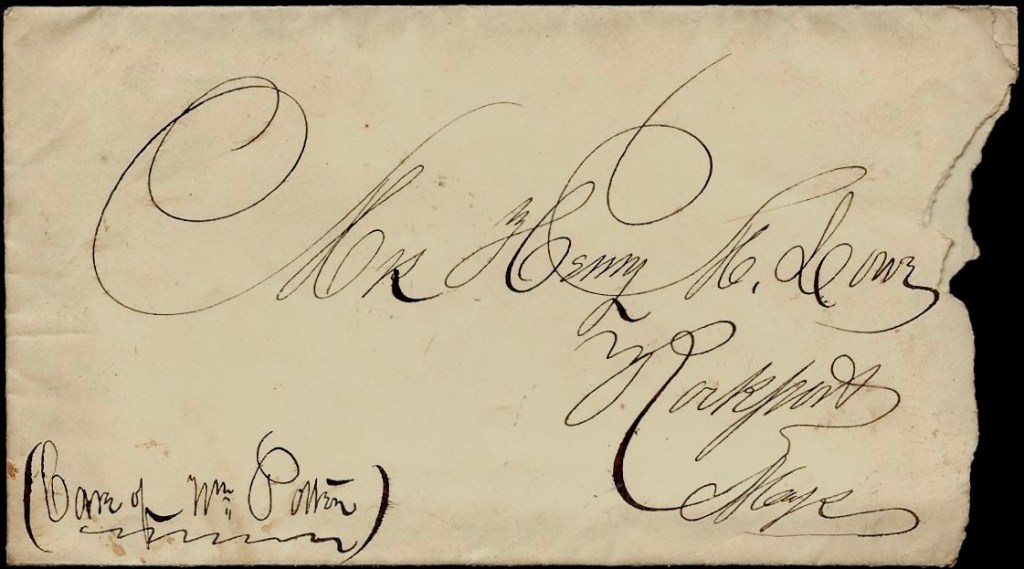 Mrs Henry M. Lowe
Rockport
Mass
(Care of Wm. Potter)